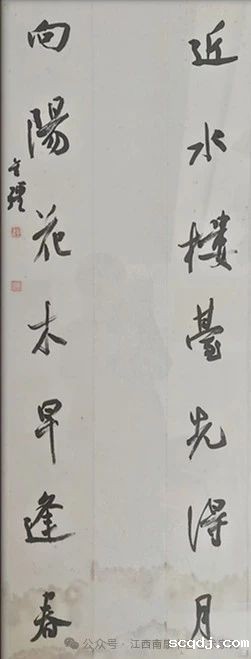 近水楼臺先得月
向陽花木早逢春
公众号·江西南
scqdcj.com